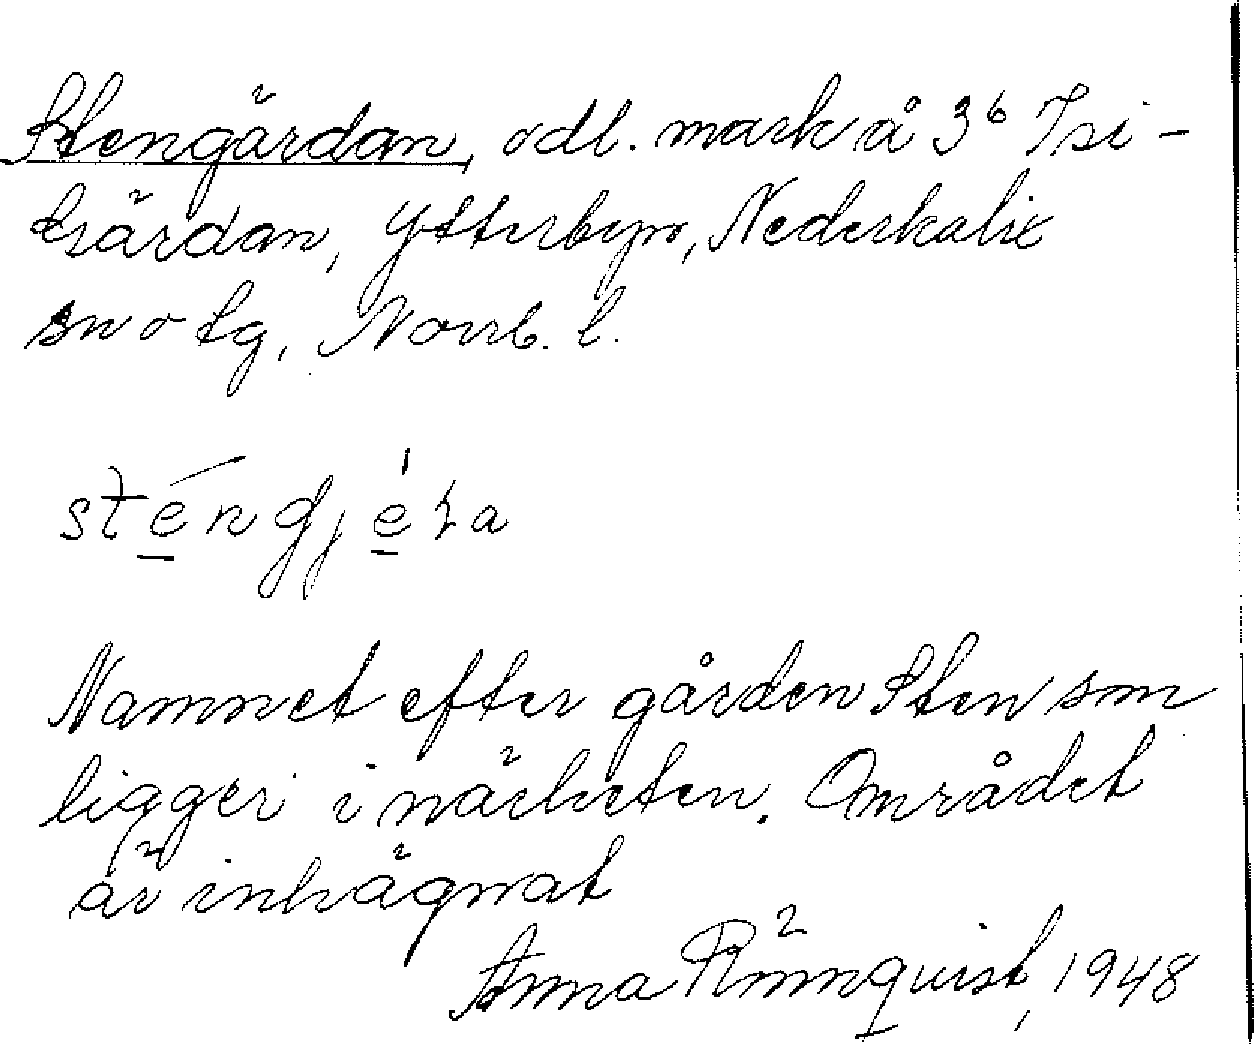 Stengärdan, odl. mark å 3⁶ Tsi-
tsärdan, Ytterbyn, Nederkalix
sn o tg, Norrb. l.
sténgjéṙa
Namnet efter gården Sten som
ligger i närheten. Området
är inhägnat
Anna Rönnquist, 1948